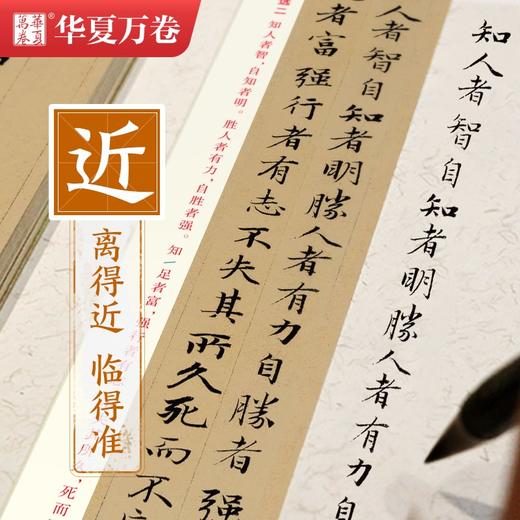 華夏
萬卷
华夏万卷
近
离得近 临得准
知人者智自知者明勝人者有力自
人者智自知者明勝人者有力自勝者強
者富強行者有志不失其所久死而不
选二 知人者智，自知者明。胜人者有力，自胜者强。知足者富，强行者有
死而